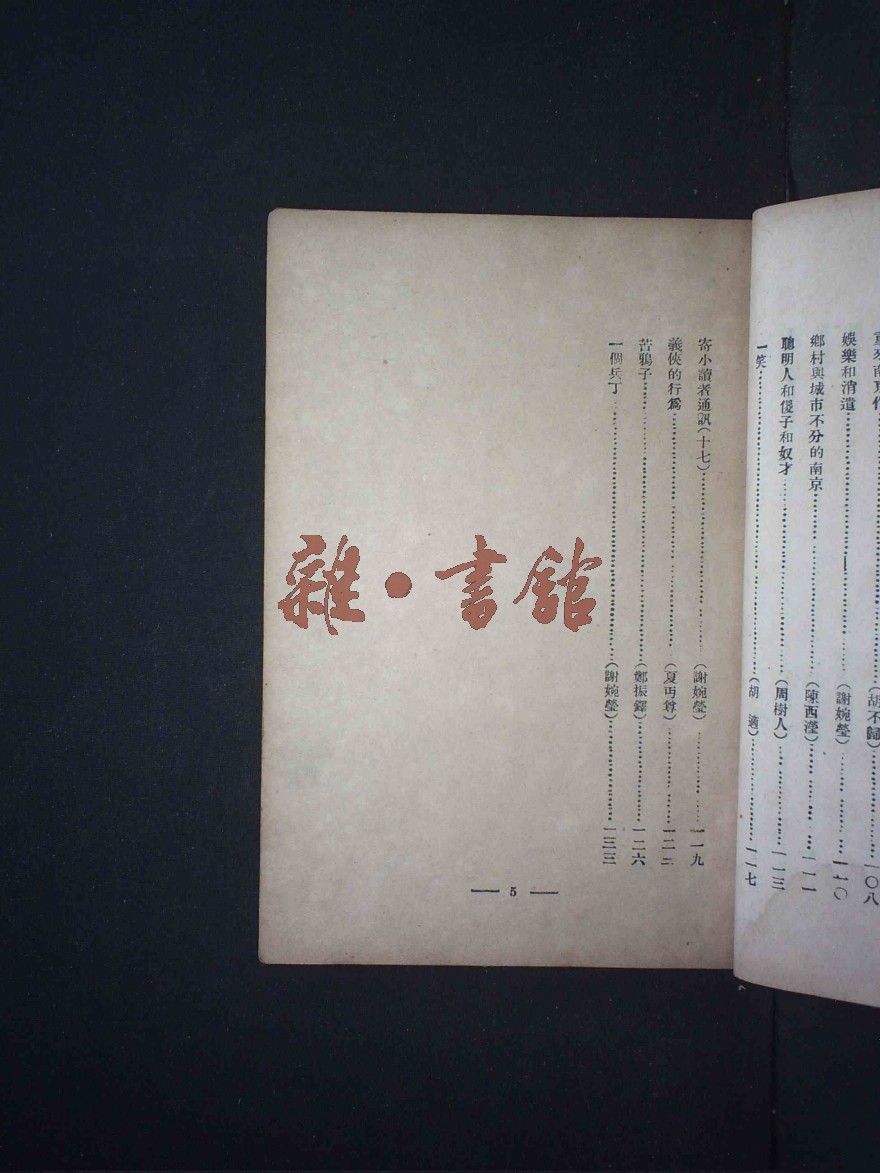 南京
(胡不歸)
一〇八
娛樂和消遣
(謝婉瑩)
一一〇
鄉村與城市不分的南京
(陳西瀅)
一一一
聰明人和儍子和奴才
(周樹人)
一一三
一笑
(胡適)
一一七
寄小讀者通訊(十七)
(謝婉瑩)
一一九
義俠的行爲
(夏丏尊)
一二二
苦鴉子
(鄭振鐸)
一二六
一個兵丁
(謝婉瑩)
一三三
5
雜·書館